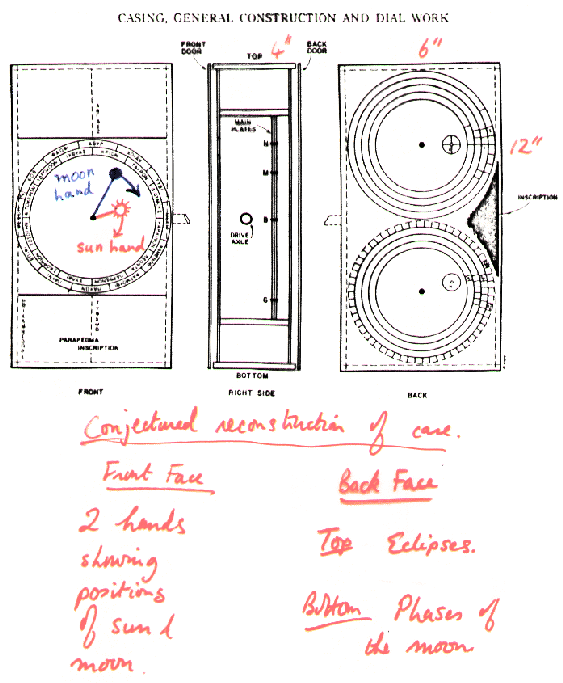 CASING, GENERAL CONSTRUCTION AND DIAL WORK
FRONT DOOR
TOP
4"
BACK DOOR
6"
MAIN PLATES
12"
moon hand
sun hand
DRIVE AXLE
INSCRIPTION
B
G
PARAPEGMA INSCRIPTION
BOTTOM
FRONT
RIGHT SIDE
BACK
Conjectured reconstruction of case.
Front Face
Back Face
2 hands
showing
positions
of sun &
moon.
Top Eclipses.
Bottom Phases of
the moon